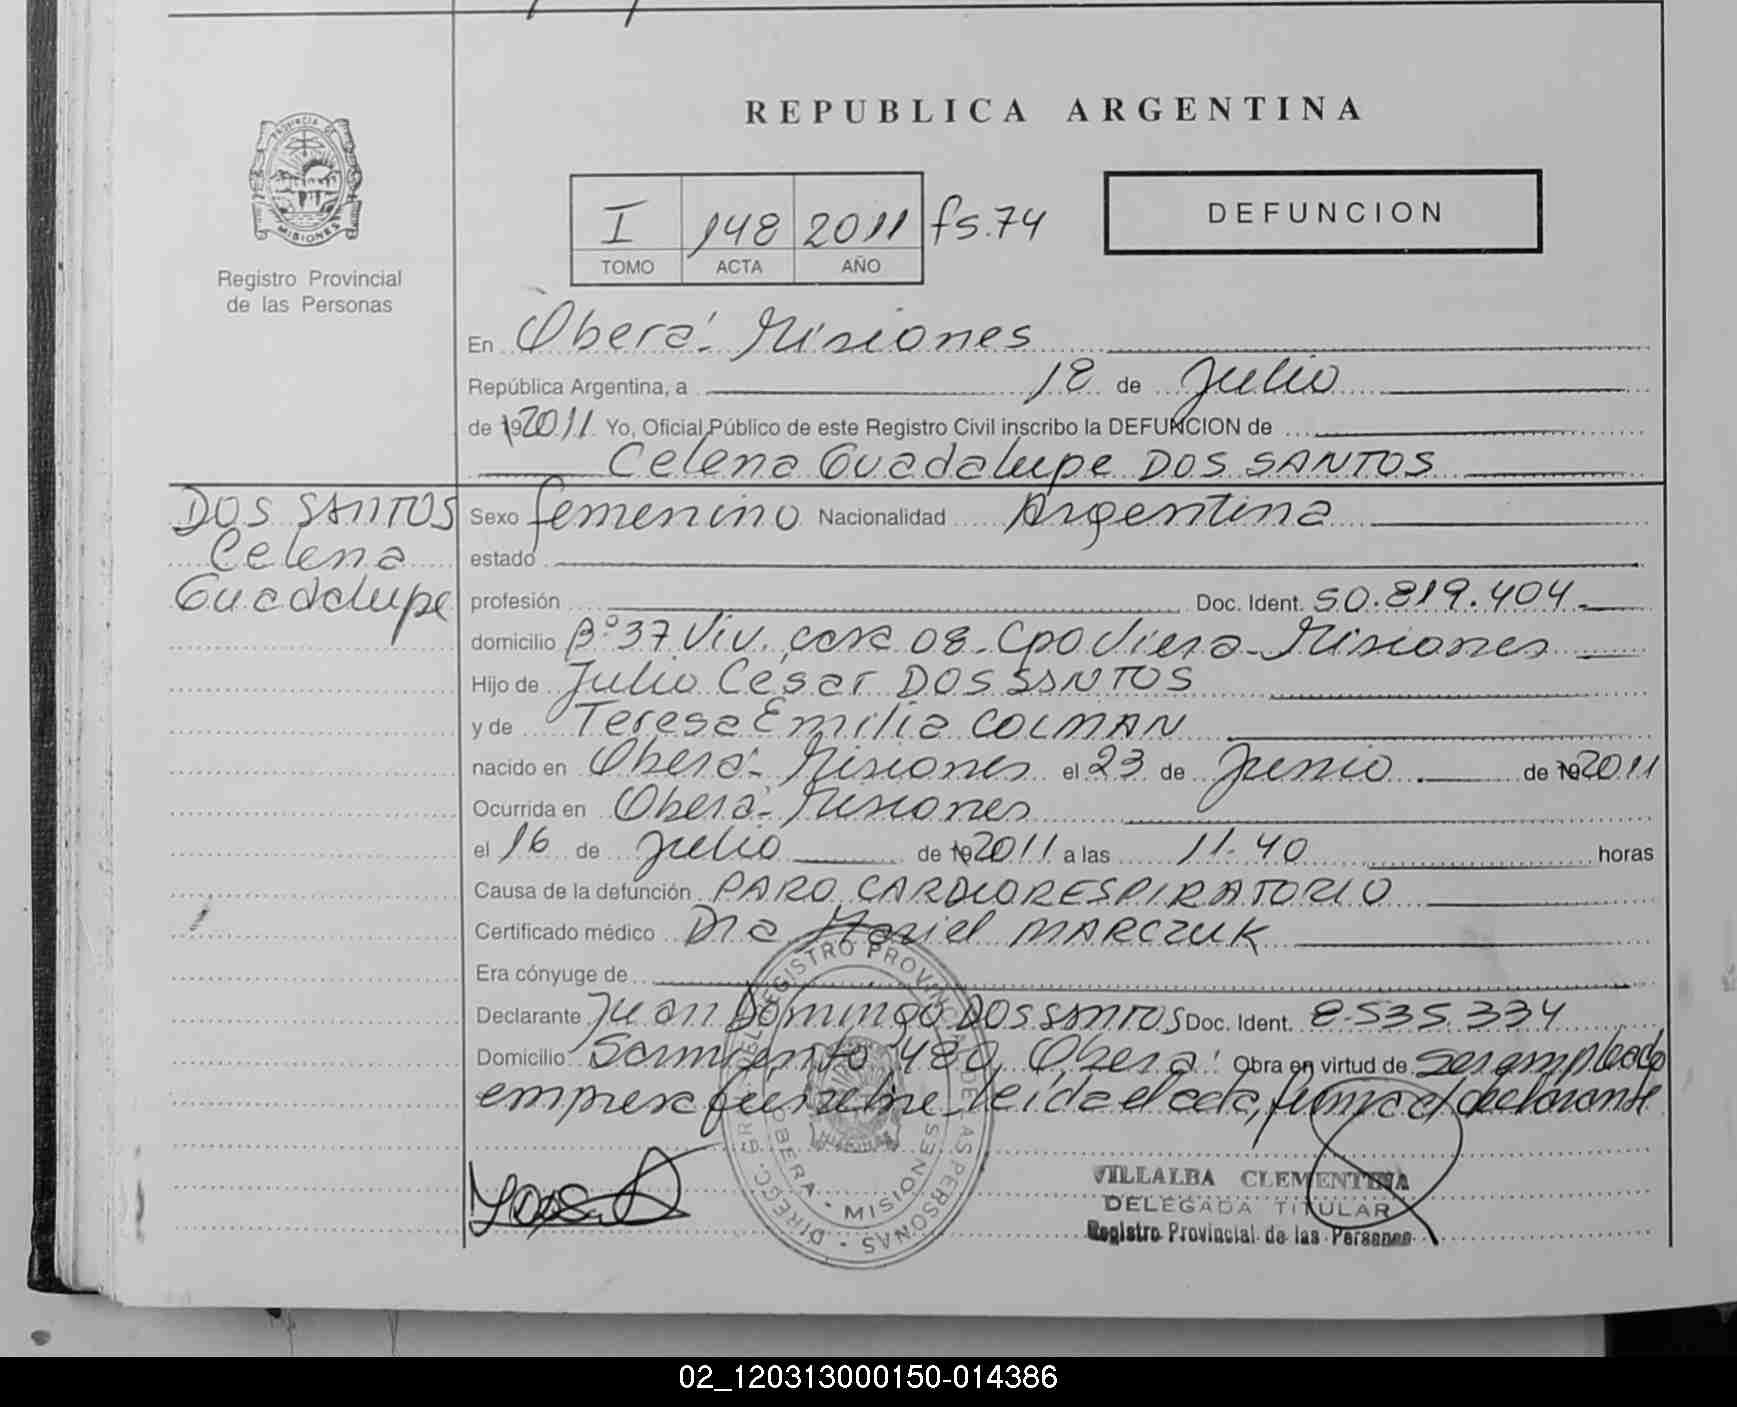 REPUBLICA ARGENTINA
PROVINCIA DE
MISIONES
Registro Provincial
de las Personas
I 148 2011 fs.74
TOMO ACTA AÑO
DEFUNCION
En Oberá- Misiones
República Argentina, a 18 de Julio
de 192011 Yo, Oficial Público de este Registro Civil inscribo la DEFUNCION de
Celena Guadalupe DOS SANTOS
DOS SANTOS
Celena
Guadalupe
Sexo femenino Nacionalidad Argentina
estado
profesión Doc. Ident. 50.819.404
domicilio B° 37 Viv. casa 08- Cpo Viera- Misiones
Hijo de Julio César DOS SANTOS
y de Teresa Emilia COLMAN
nacido en Oberá- Misiones el 23 de Junio de 192011
Ocurrida en Oberá- Misiones
el 16 de Julio de 192011 a las 11.40 horas
Causa de la defunción PARO CARDIORESPIRATORIO
Certificado médico Dra Mariel MARCZUK
Era cónyuge de
Declarante Juan Domingo DOS SANTOS Doc. Ident. 8.535.334
Domicilio Sarmiento 480, Oberá. Obra en virtud de ser empleado
empresa fúnebre leída el acta, firma el declarante
DIREGC. GR. DEL REGISTRO PROVINCIAL DE LAS PERSONAS
OBERA - MISIONES
VILLALBA CLEMENTINA
DELEGADA TITULAR
Registro Provincial de las Personas
02_120313000150-014386